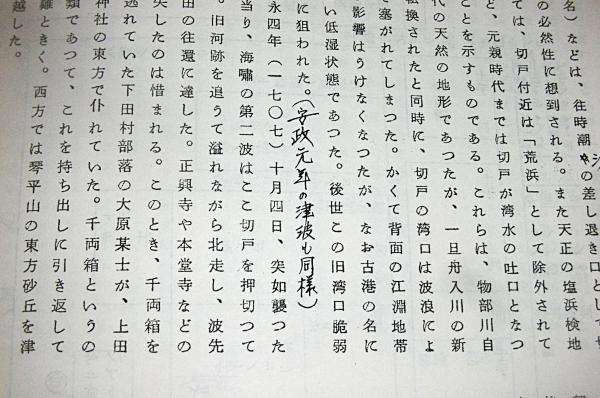 名）などは、往時潮の差し退き口として
の必然性に想到される。また天正の塩浜検地
ては、切戸付近は「荒浜」として除外されて
ど、元親時代までは切戸が湾水の吐口となつ
ことを示すものである。これらは、物部川自
代の天然の地形であつたが、一旦舟入川の新
転換されたと同時に、切戸の湾口は波浪によ
で塞がれてしまつた。かくて背面の江淵地帯
影響はうけなくなつたが、なお古港の名に
い低湿状態であつた。後世この旧湾口脆弱
に狙われた。（安政元年の津波も同様）
永四年（一七〇七）十月四日、突如襲つた
当り、海嘯の第二波はここ切戸を押切つて
。旧河跡を追うて溢れながら北走し、波先
田の往還に達した。正興寺や本堂寺などの
失したのは惜まれる。このとき、千両箱を
逃れていた下田村部落の大原某士が、上田
神社の東方で仆れていた。千両箱というの
類であつて、これを持ち出しに引き返して
難ときく。西方では琴平山の東方砂丘を津
越した。